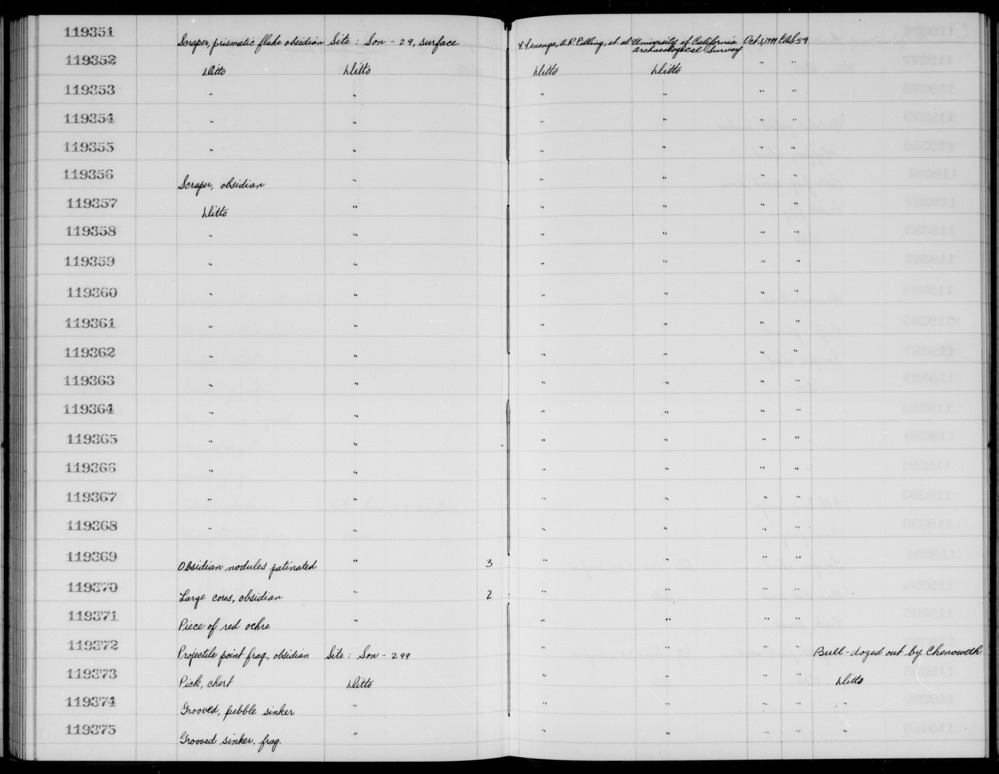 119351 Scraper, prismatic flake obsidian Site : Son - 29, surface A.R. Pilling, et al University of California Archaeological Survey Oct 1, 1949
119352 Ditto Ditto Ditto Ditto " "
119353 " " " " " "
119354 " " " " " "
119355 " " " " " "
119356 Scraper, obsidian " " " " "
119357 Ditto " " " " "
119358 " " " " " "
119359 " " " " " "
119360 " " " " " "
119361 " " " " " "
119362 " " " " " "
119363 " " " " " "
119364 " " " " " "
119365 " " " " " "
119366 " " " " " "
119367 " " " " " "
119368 " " " " " "
119369 Obsidian nodules patinated " 3 " " " "
119370 Large cores, obsidian " 2 " " " "
119371 Piece of red ochre " " " " "
119372 Projectile point frag, obsidian Site : Son - 299 " " " " Bull-dozed out by Chenoweth
119373 Pick, chert Ditto " " " " Ditto
119374 Grooved, pebble sinker " " " " " "
119375 Grooved sinker, frag. " " " " " "